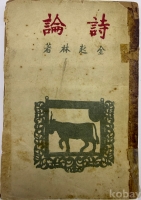 詩論
金起林著
kobay